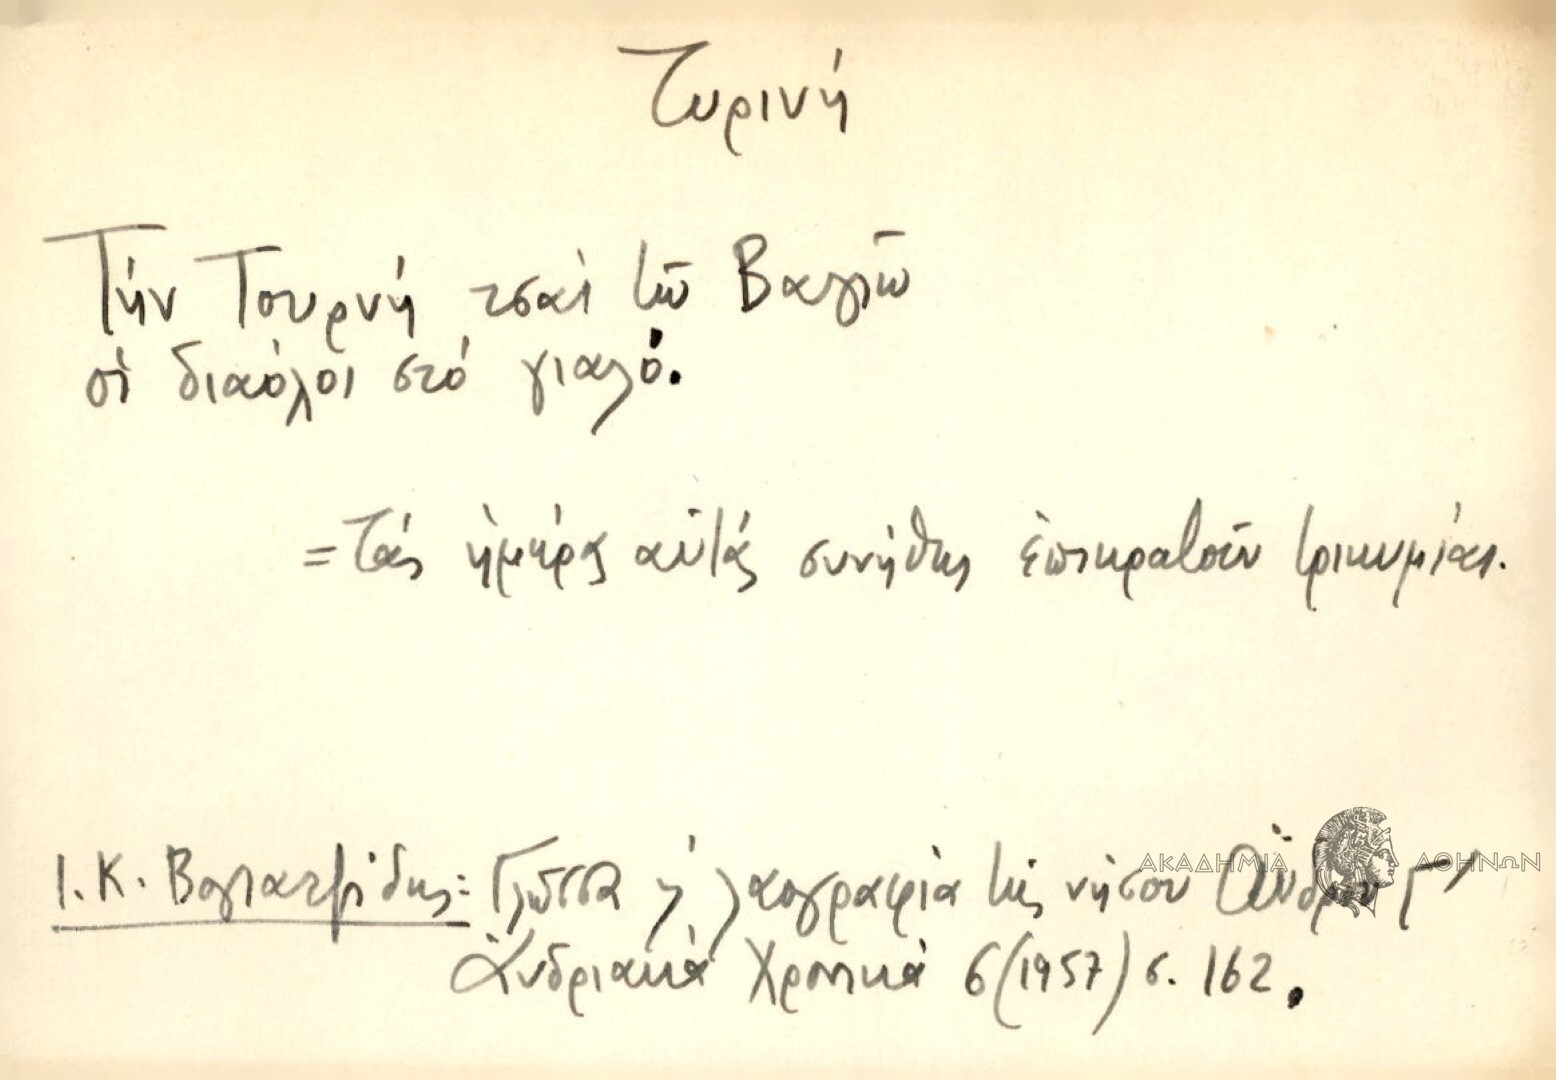 Τυρινή
Τήν Τουρνή τσαί τῶ Βαγιῶ
οἱ διαόλοι στό γιαλό.
= Τάς ἡμέρας αὐτάς συνήθως ἐπικρατοῦν τρικυμίαι.
Ι. Κ. Βογιατζίδης: Γλῶσσα καί λαογραφία τῆς νήσου Ἄνδρου Γ΄
Ἀνδριακά Χρονικά 6 (1957) σ. 162.
ΑΚΑΔΗΜΙΑ ΑΘΗΝΩΝ